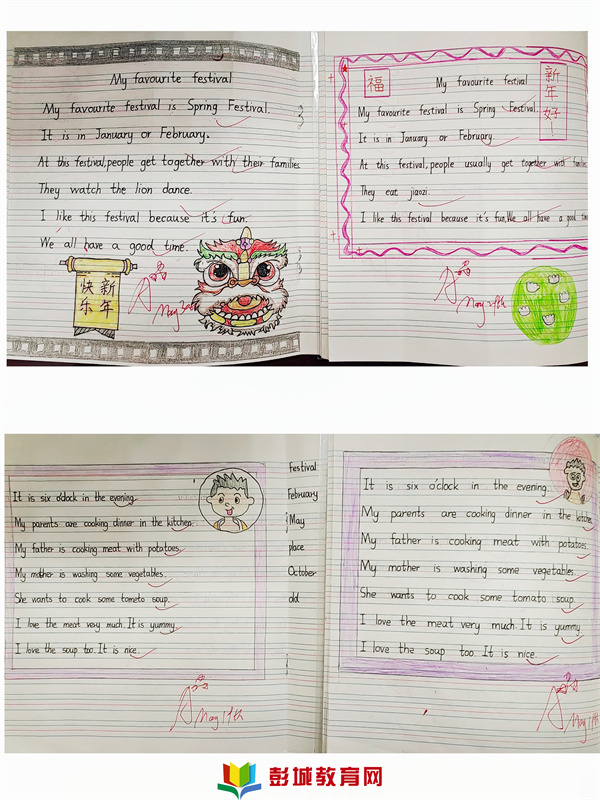 My favourite festival
My favourite festival is Spring Festival.
It is in January or February.
At this festival,people get together with their families
They watch the lion dance.
I like this festival because it's fun.
We all have a good time.
新年
快乐
May 30th
福
新年好!
My favourite festival
My favourite festival is Spring Festival.
It is in January or February.
At this festival, people usually get together with families
They eat jiaozi.
I like this festival because it's fun.We all have a good time
It is six o'clock in the evening.
My parents are cooking dinner in the kitchen.
My father is cooking meat with potatoes.
My mother is washing some vegetables.
She wants to cook some tomato soup.
I love the meat very much. It is yummy.
I love the soup too. It is nice.
May 17th
Festival
February
May
place
October
old
It is six o'clock in the evening.
My parents are cooking dinner in the kitchen.
My father is cooking meat with potatoes.
My mother is washing some vegetables.
She wants to cook some tomato soup.
I love the meat very much. It is yummy.
I love the soup too. It is nice.
May 17th
彭城教育网